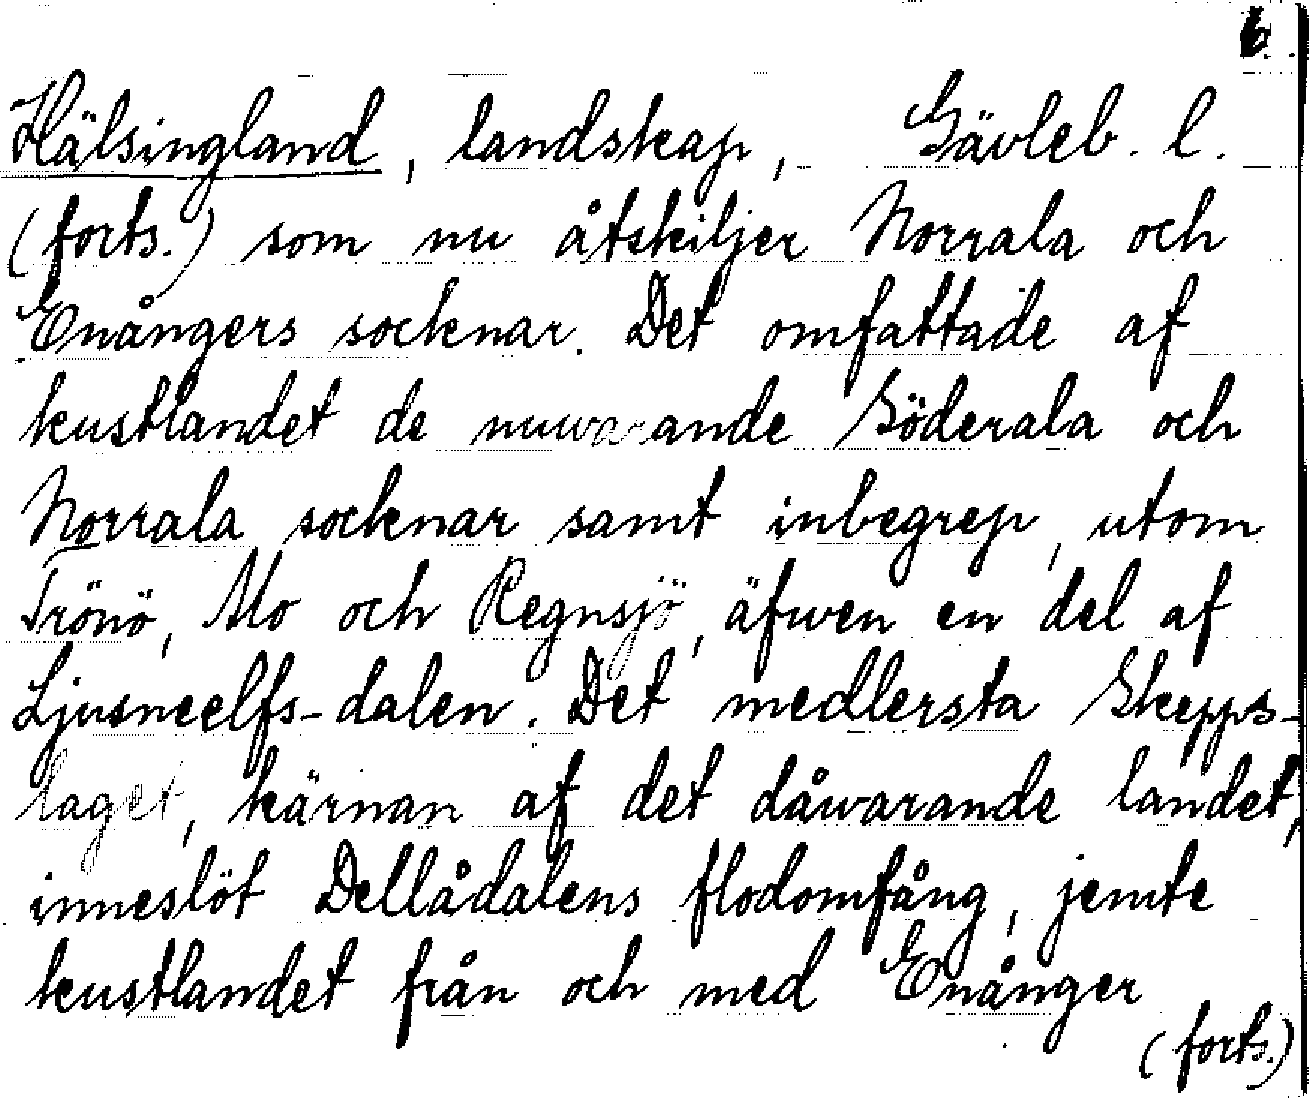 6.
Hälsingland, landskap, Gävleb. l.
(forts.) som nu åtskiljer Norrala och
Enångers socknar. Det omfattade af
kustlandet de nuvarande Söderala och
Norrala socknar samt inbegrep, utom
Trönö, Mo och Regnsjö, äfwen en del af
Ljusneelfs-dalen. Det medlersta Skepps-
laget, kärnan af det dåwarande landet,
inneslöt Dellådalens flodomfång, jemte
kustlandet från och med Enånger
(forts.)